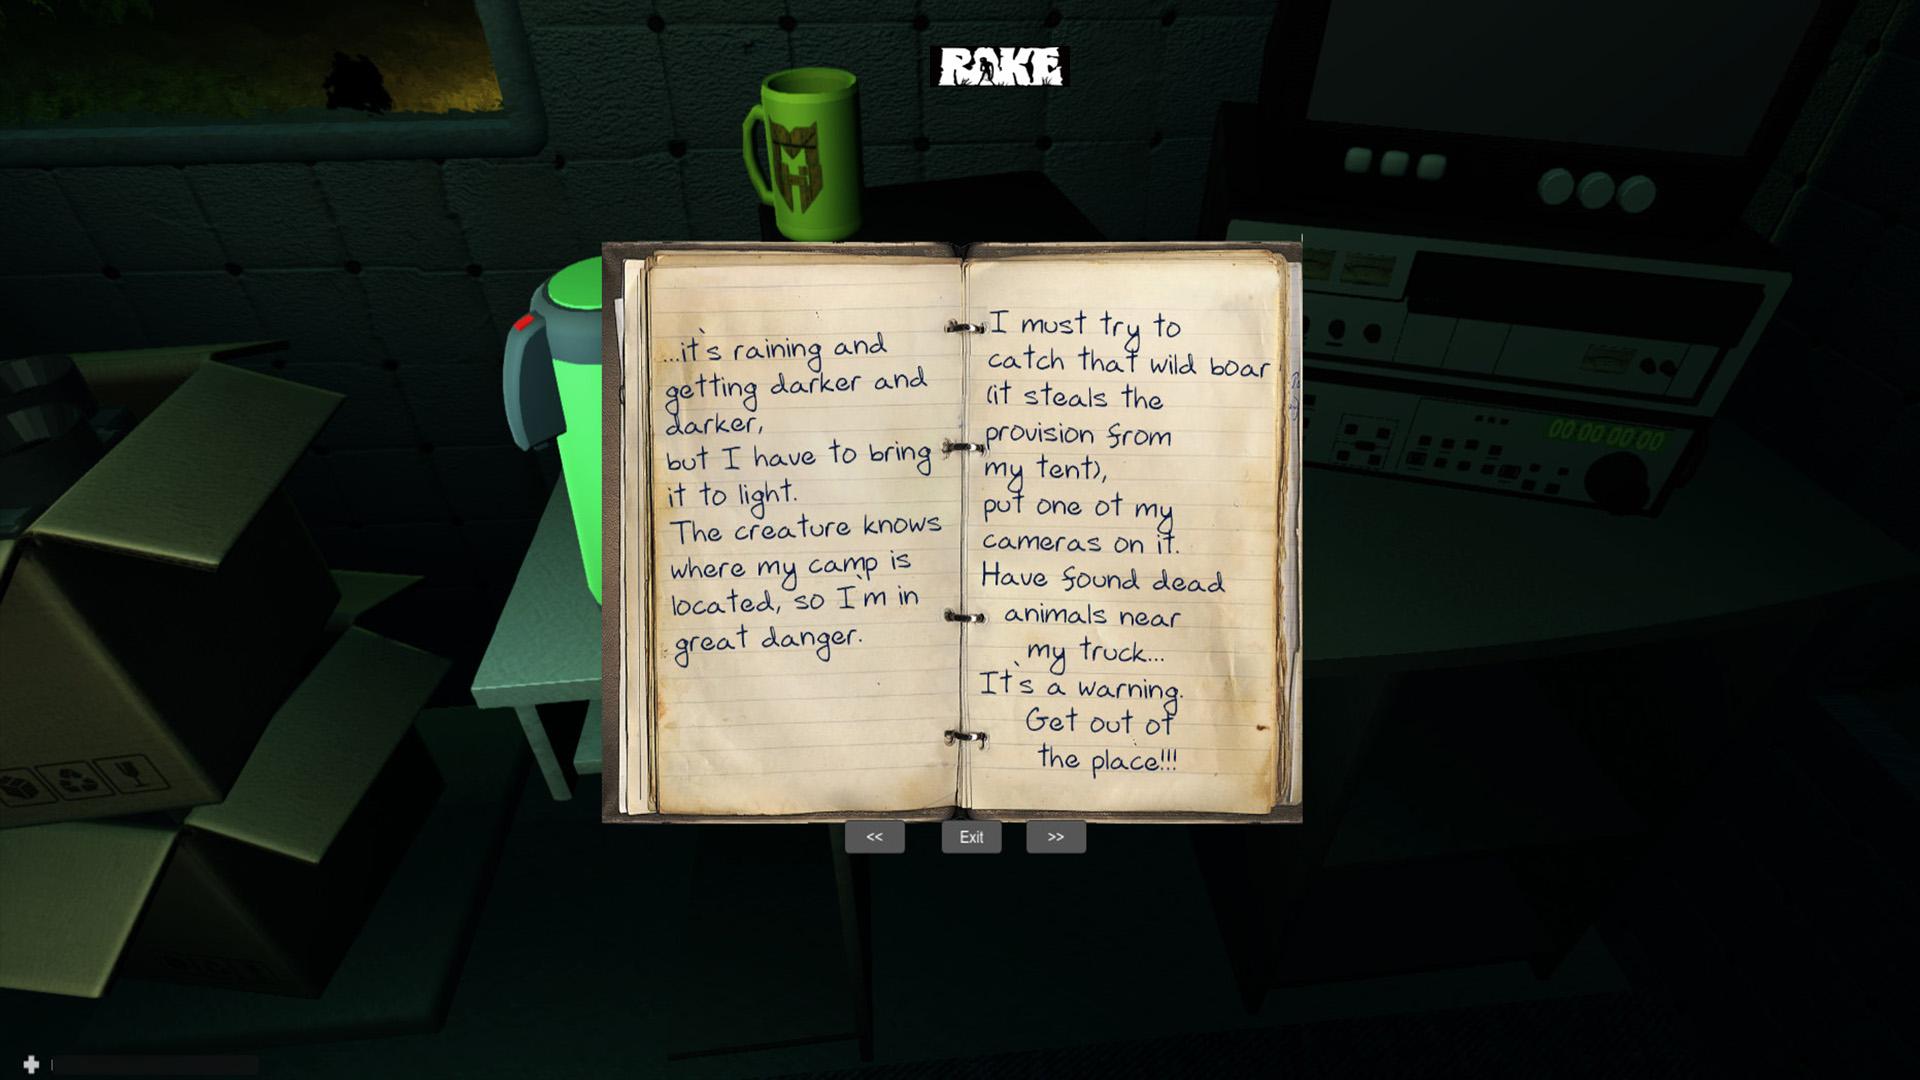 RAKE
MH
...it's raining and
getting darker and
darker,
but I have to bring
it to light.
The creature knows
where my camp is
located, so I'm in
great danger.
I must try to
catch that wild boar
(it steals the
provision from
my tent),
put one of my
cameras on it.
Have found dead
animals near
my truck...
It's a warning.
Get out of
the place!!!
00:00:00:00
<< Exit >>